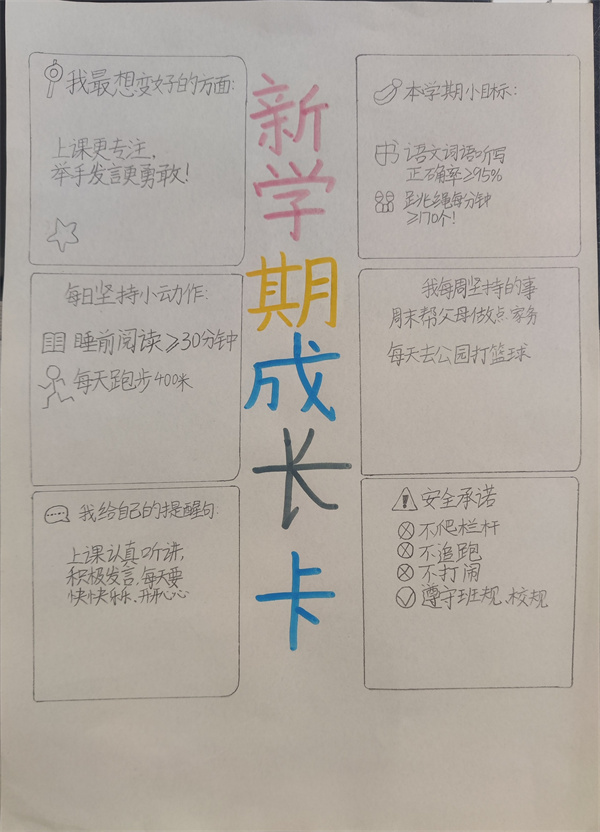 新学期成长卡
我最想变好的方面:
上课更专注,
举手发言更勇敢!
本学期小目标:
语文词语听写
正确率≥95%
跳绳每分钟
≥170个!
每日坚持小动作:
睡前阅读≥30分钟
每天跑步400米
我每周坚持的事
周末帮父母做点家务
每天去公园打篮球
我给自己的提醒句:
上课认真听讲,
积极发言,每天要
快快乐乐、开开心心
安全承诺
不爬栏杆
不追跑
不打闹
遵守班规、校规